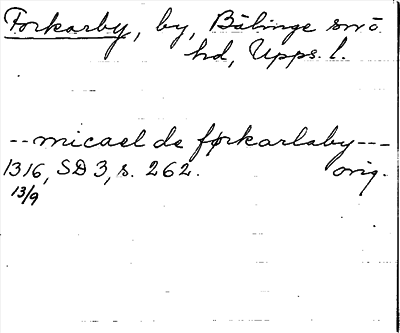 Forkarby, by, Bälinge sn o
hd, Upps. l.
--micael de førkarlaby---
1316, SD 3, s. 262. orig.
13/9